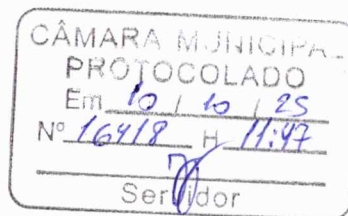 CÂMARA MUNICIPAL
PROTOCOLADO
Em 10 / 10 / 25
Nº 16418 H 11:47
Servidor